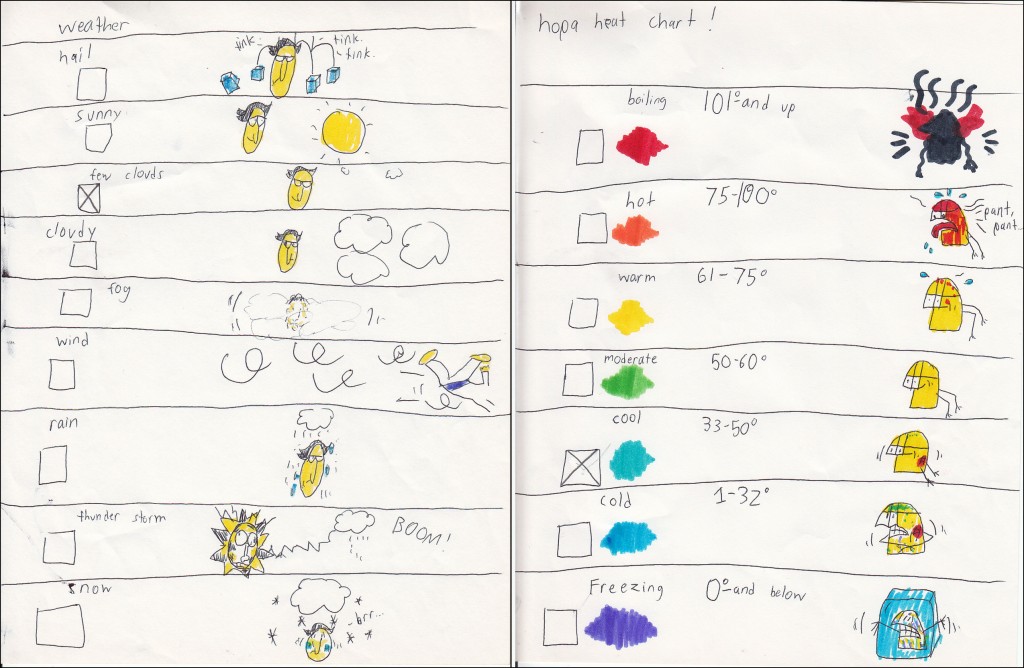 weather
hail
tink.
tink.
tink.
sunny
few clouds
cloudy
fog
wind
rain
thunder storm
BOOM!
snow
brr...
hopa heat chart!
boiling 101° and up
hot 75-100°
pant,
pant..
warm 61-75°
moderate 50-60°
cool 33-50°
cold 1-32°
Freezing 0° and below